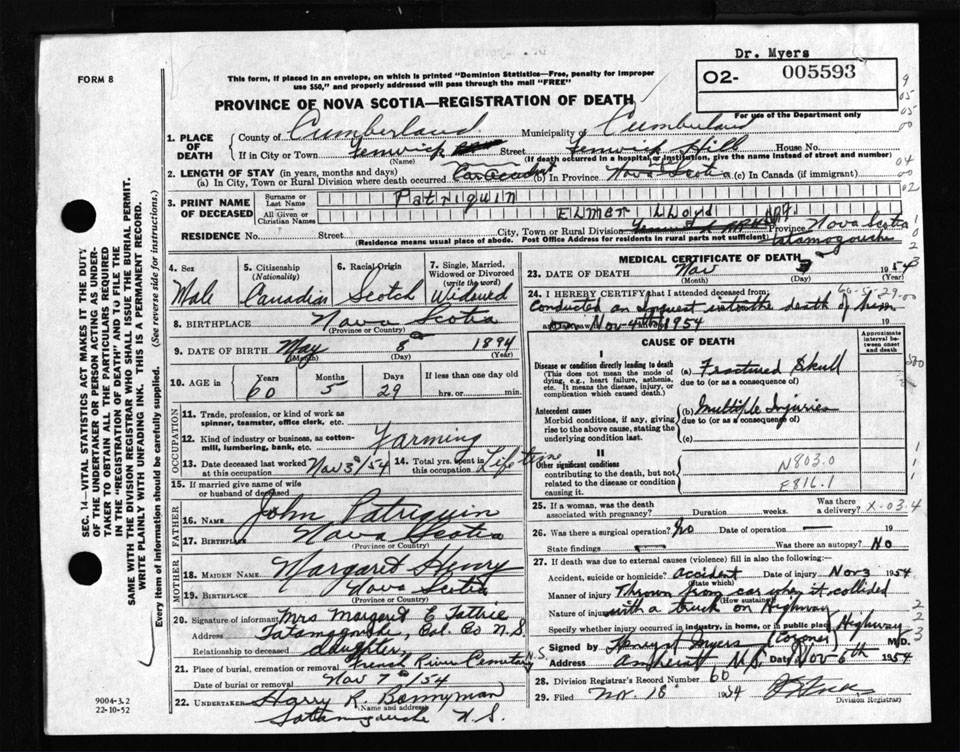 Dr. Myers
FORM 8
This form, if placed in an envelope, on which is printed "Dominion Statistics—Free, penalty for improper
use $50," and properly addressed will pass through the mail "FREE"
O2- 005593
For use of the Department only
PROVINCE OF NOVA SCOTIA—REGISTRATION OF DEATH
1. PLACE OF DEATH
County of Cumberland Municipality of Cumberland
If in City or Town Fenwick Street Fenwick Hill House No.
(Name) (If death occurred in a hospital or institution, give the name instead of street and number)
2. LENGTH OF STAY (in years, months and days)
(a) In City, Town or Rural Division where death occurred Car accident (b) In Province Nova Scotia (c) In Canada (if immigrant)
3. PRINT NAME OF DECEASED
Surname or Last Name Patriquin
All Given or Christian Names Elmer Lloyd
RESIDENCE No. Street City, Town or Rural Division Tatamagouche Province Nova Scotia
(Residence means usual place of abode. Post Office Address for residents in rural parts not sufficient)
4. Sex Male
5. Citizenship (Nationality) Canadian
6. Racial Origin Scotch
7. Single, Married, Widowed or Divorced (write the word) Widowed
8. BIRTHPLACE Nova Scotia
(Province or Country)
9. DATE OF BIRTH May 8 1894
(Month) (Day) (Year)
10. AGE in Years Months Days If less than one day old
60 5 29 hrs. or min.
OCCUPATION
11. Trade, profession, or kind of work as
spinner, teamster, office clerk, etc.
12. Kind of industry or business, as cotton-
mill, lumbering, bank, etc. Farming
13. Date deceased last worked at this occupation Nov 3/54 14. Total yrs. spent in this occupation Life time
15. If married give name of wife
or husband of deceased
FATHER
16. NAME John Patriquin
17. BIRTHPLACE Nova Scotia
(Province or Country)
MOTHER
18. MAIDEN NAME Margaret Henry
19. BIRTHPLACE Nova Scotia
(Province or Country)
20. Signature of informant Mrs Margaret E Tattrie
Address Tatamagouche, Col. Co N.S.
Relationship to deceased daughter
21. Place of burial, cremation or removal French River Cemetery N.S.
Date of burial or removal Nov 7th/54
22. UNDERTAKER Harry R. Bonnyman
(Name and address)
Tatamagouche N.S.
MEDICAL CERTIFICATE OF DEATH
23. DATE OF DEATH Nov 3 1954
(Month) (Day) (Year)
24. I HEREBY CERTIFY that I attended deceased from: 60-5-29
Conducted an Inquest into the death of him
on Nov 4th 1954 19
CAUSE OF DEATH
Approximate interval between onset and death
I
Disease or condition directly leading to death
(This does not mean the mode of
dying, e.g., heart failure, asthenia,
etc. It means the disease, injury, or
complication which caused death.)
(a) Fractured Skull
due to (or as a consequence of)
Antecedent causes
Morbid conditions, if any, giving
rise to the above cause, stating the
underlying condition last.
(b) Multiple Injuries
due to (or as a consequence of)
(c)
II
Other significant conditions
contributing to the death, but not
related to the disease or condition
causing it.
N803.0
E816.1
25. If a woman, was the death
associated with pregnancy? Duration weeks. Was there a delivery? X-03.4
26. Was there surgical operation? No Date of operation — 19
State findings — Was there an autopsy? No
27. If death was due to external causes (violence) fill in also the following:
Accident, suicide or homicide? accident Date of injury Nov 3 1954
(State which)
Manner of injury Thrown from car when it collided
(How sustained)
Nature of injury with a truck on Highway
Specify whether injury occurred in industry, in home, or in public place Highway
Signed by Henry A Myers (Coroner) M.D.
Address Amherst N.S. Date Nov 6th 1954
28. Division Registrar's Record Number 60
29. Filed Nov. 18 1954
Division Registrar)
SEC. 14—VITAL STATISTICS ACT MAKES IT THE DUTY
OF THE UNDERTAKER OR PERSON ACTING AS UNDER-
TAKER TO OBTAIN ALL THE PARTICULARS REQUIRED
IN THE "REGISTRATION OF DEATH" AND TO FILE THE
SAME WITH THE DIVISION REGISTRAR WHO SHALL ISSUE THE BURIAL PERMIT.
WRITE PLAINLY WITH UNFADING INK. THIS IS A PERMANENT RECORD.
Every item of information should be carefully supplied. (See reverse side for instructions.)
9004-3.2
22-10-52